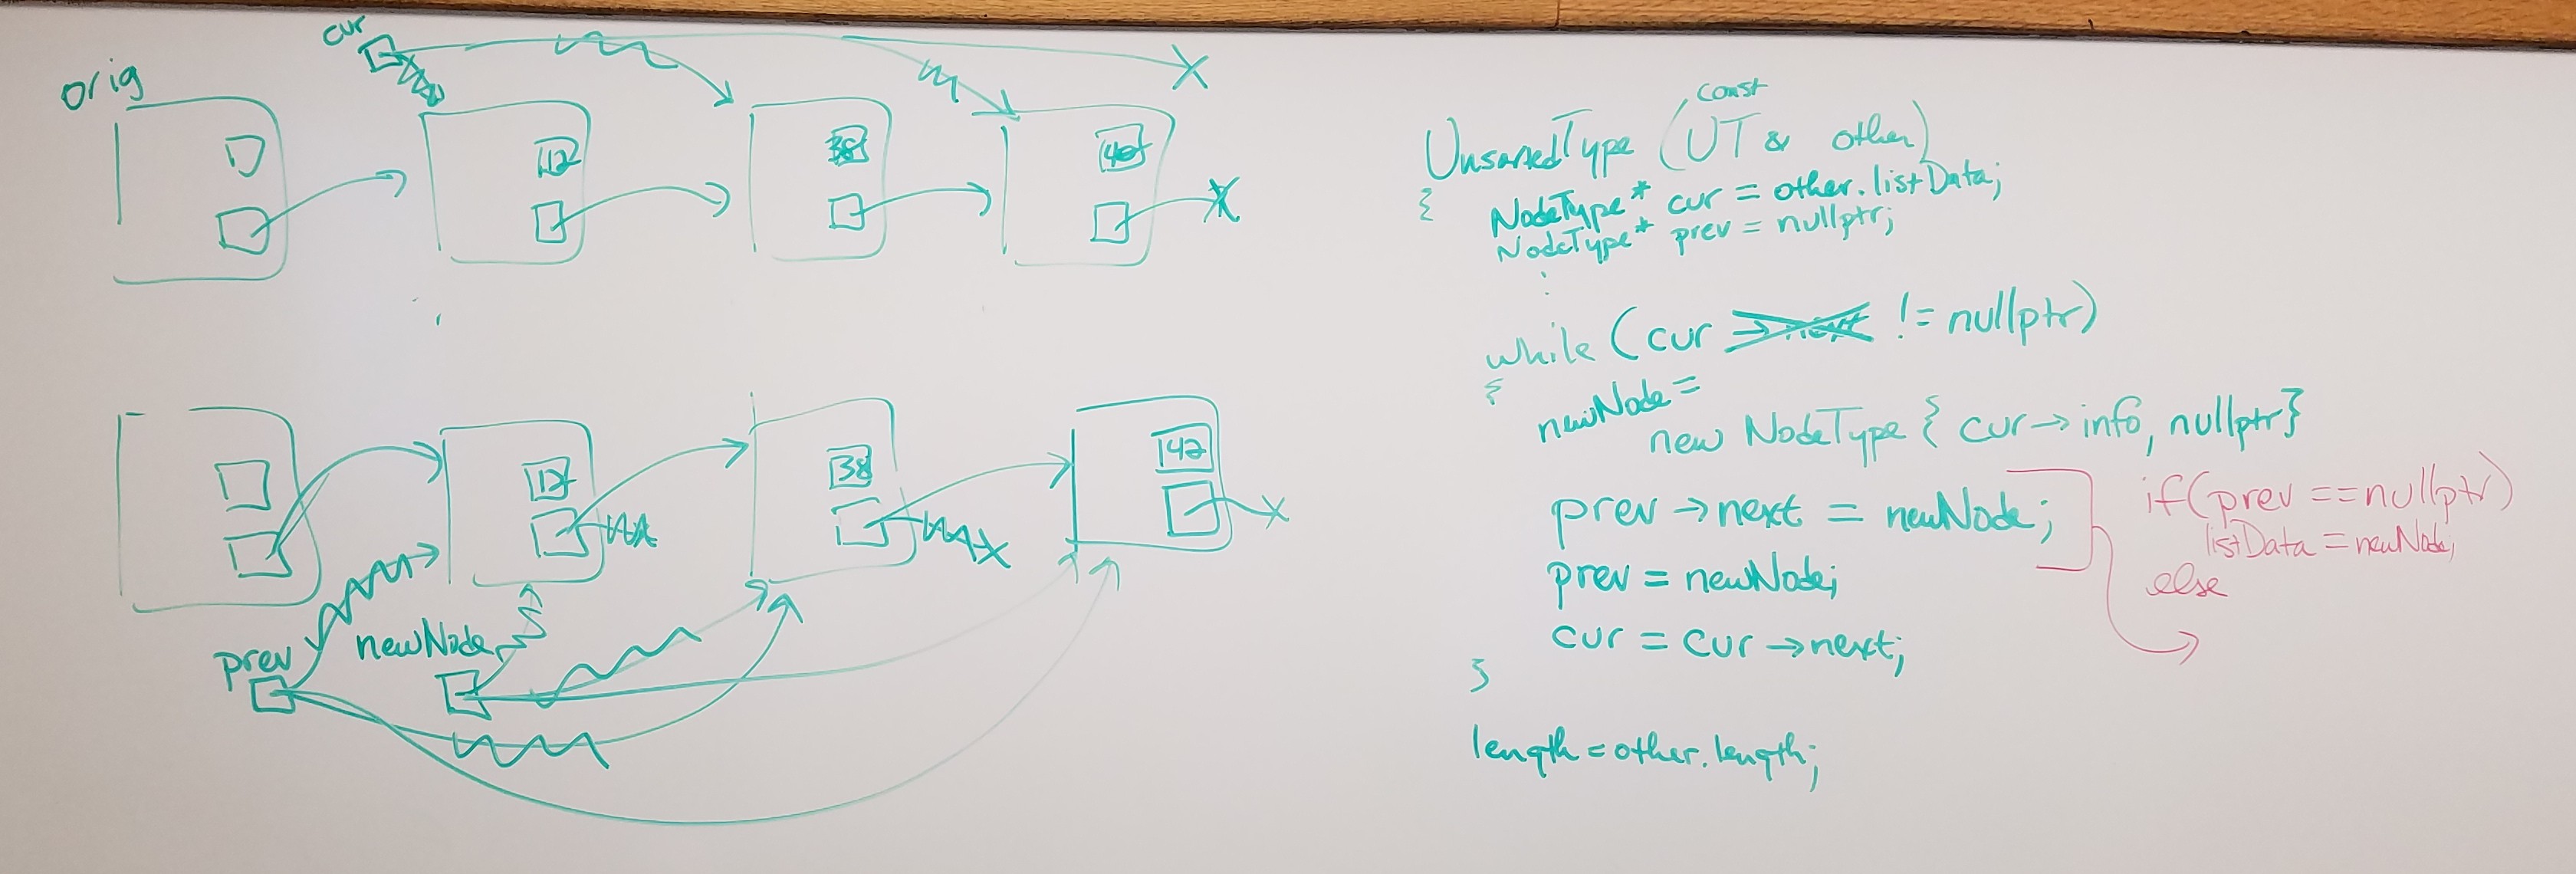 cur
orig
12
38
42
12
38
42
prev
newNode
const
UnsortedType (UT & other)
{
NodeType* cur = other.listData;
NodeType* prev = nullptr;
while (cur → next != nullptr)
{
newNode =
new NodeType { cur → info, nullptr}
prev → next = newNode;
prev = newNode;
cur = cur → next;
}
length = other.length;
if (prev == nullptr)
listData = newNode;
else